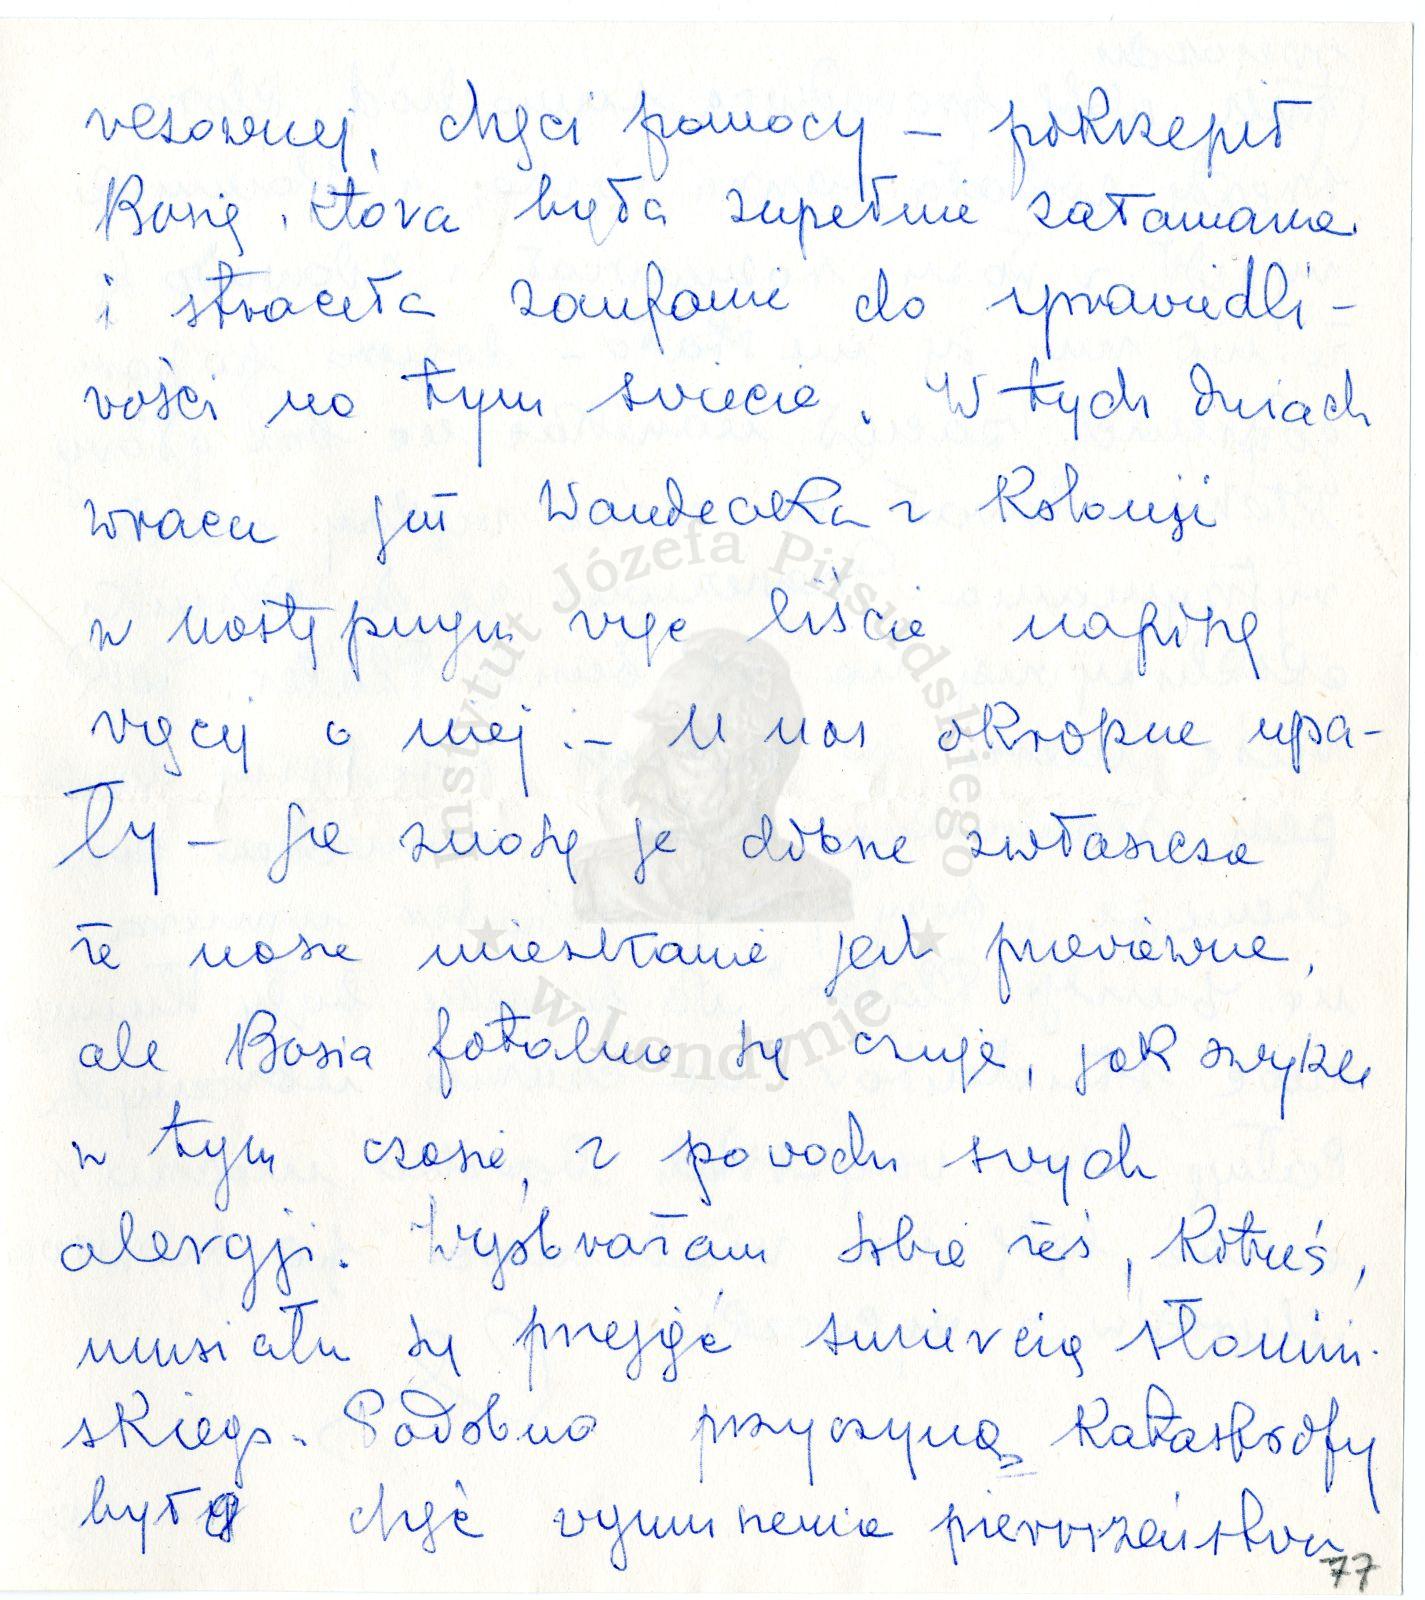 rezownej, chęci pomocy – pokrzepił
Basię, która była zupełnie załamana
i straciła zaufanie do sprawiedli-
wości na tym świecie. W tych dniach
wraca już Wandeczka z Kolonji
w następnym więc liście napiszę
więcej o niej. – U nas okropne upa-
ły – ja znoszę je dobrze zwłaszcza
że nasze mieszkanie jest przewiewne,
ale Basia fatalnie się czuje, jak zwykle
w tym czasie, z powodu swych
alergji. Wyobrażam sobie żeś, Kotuś,
musiała się przejąć śmiercią Słonim-
skiego. Podobno przyczyną katastrofy
była chęć wyminienia pierwszeństwa
77
Instytut Józefa Piłsudskiego
w Londynie